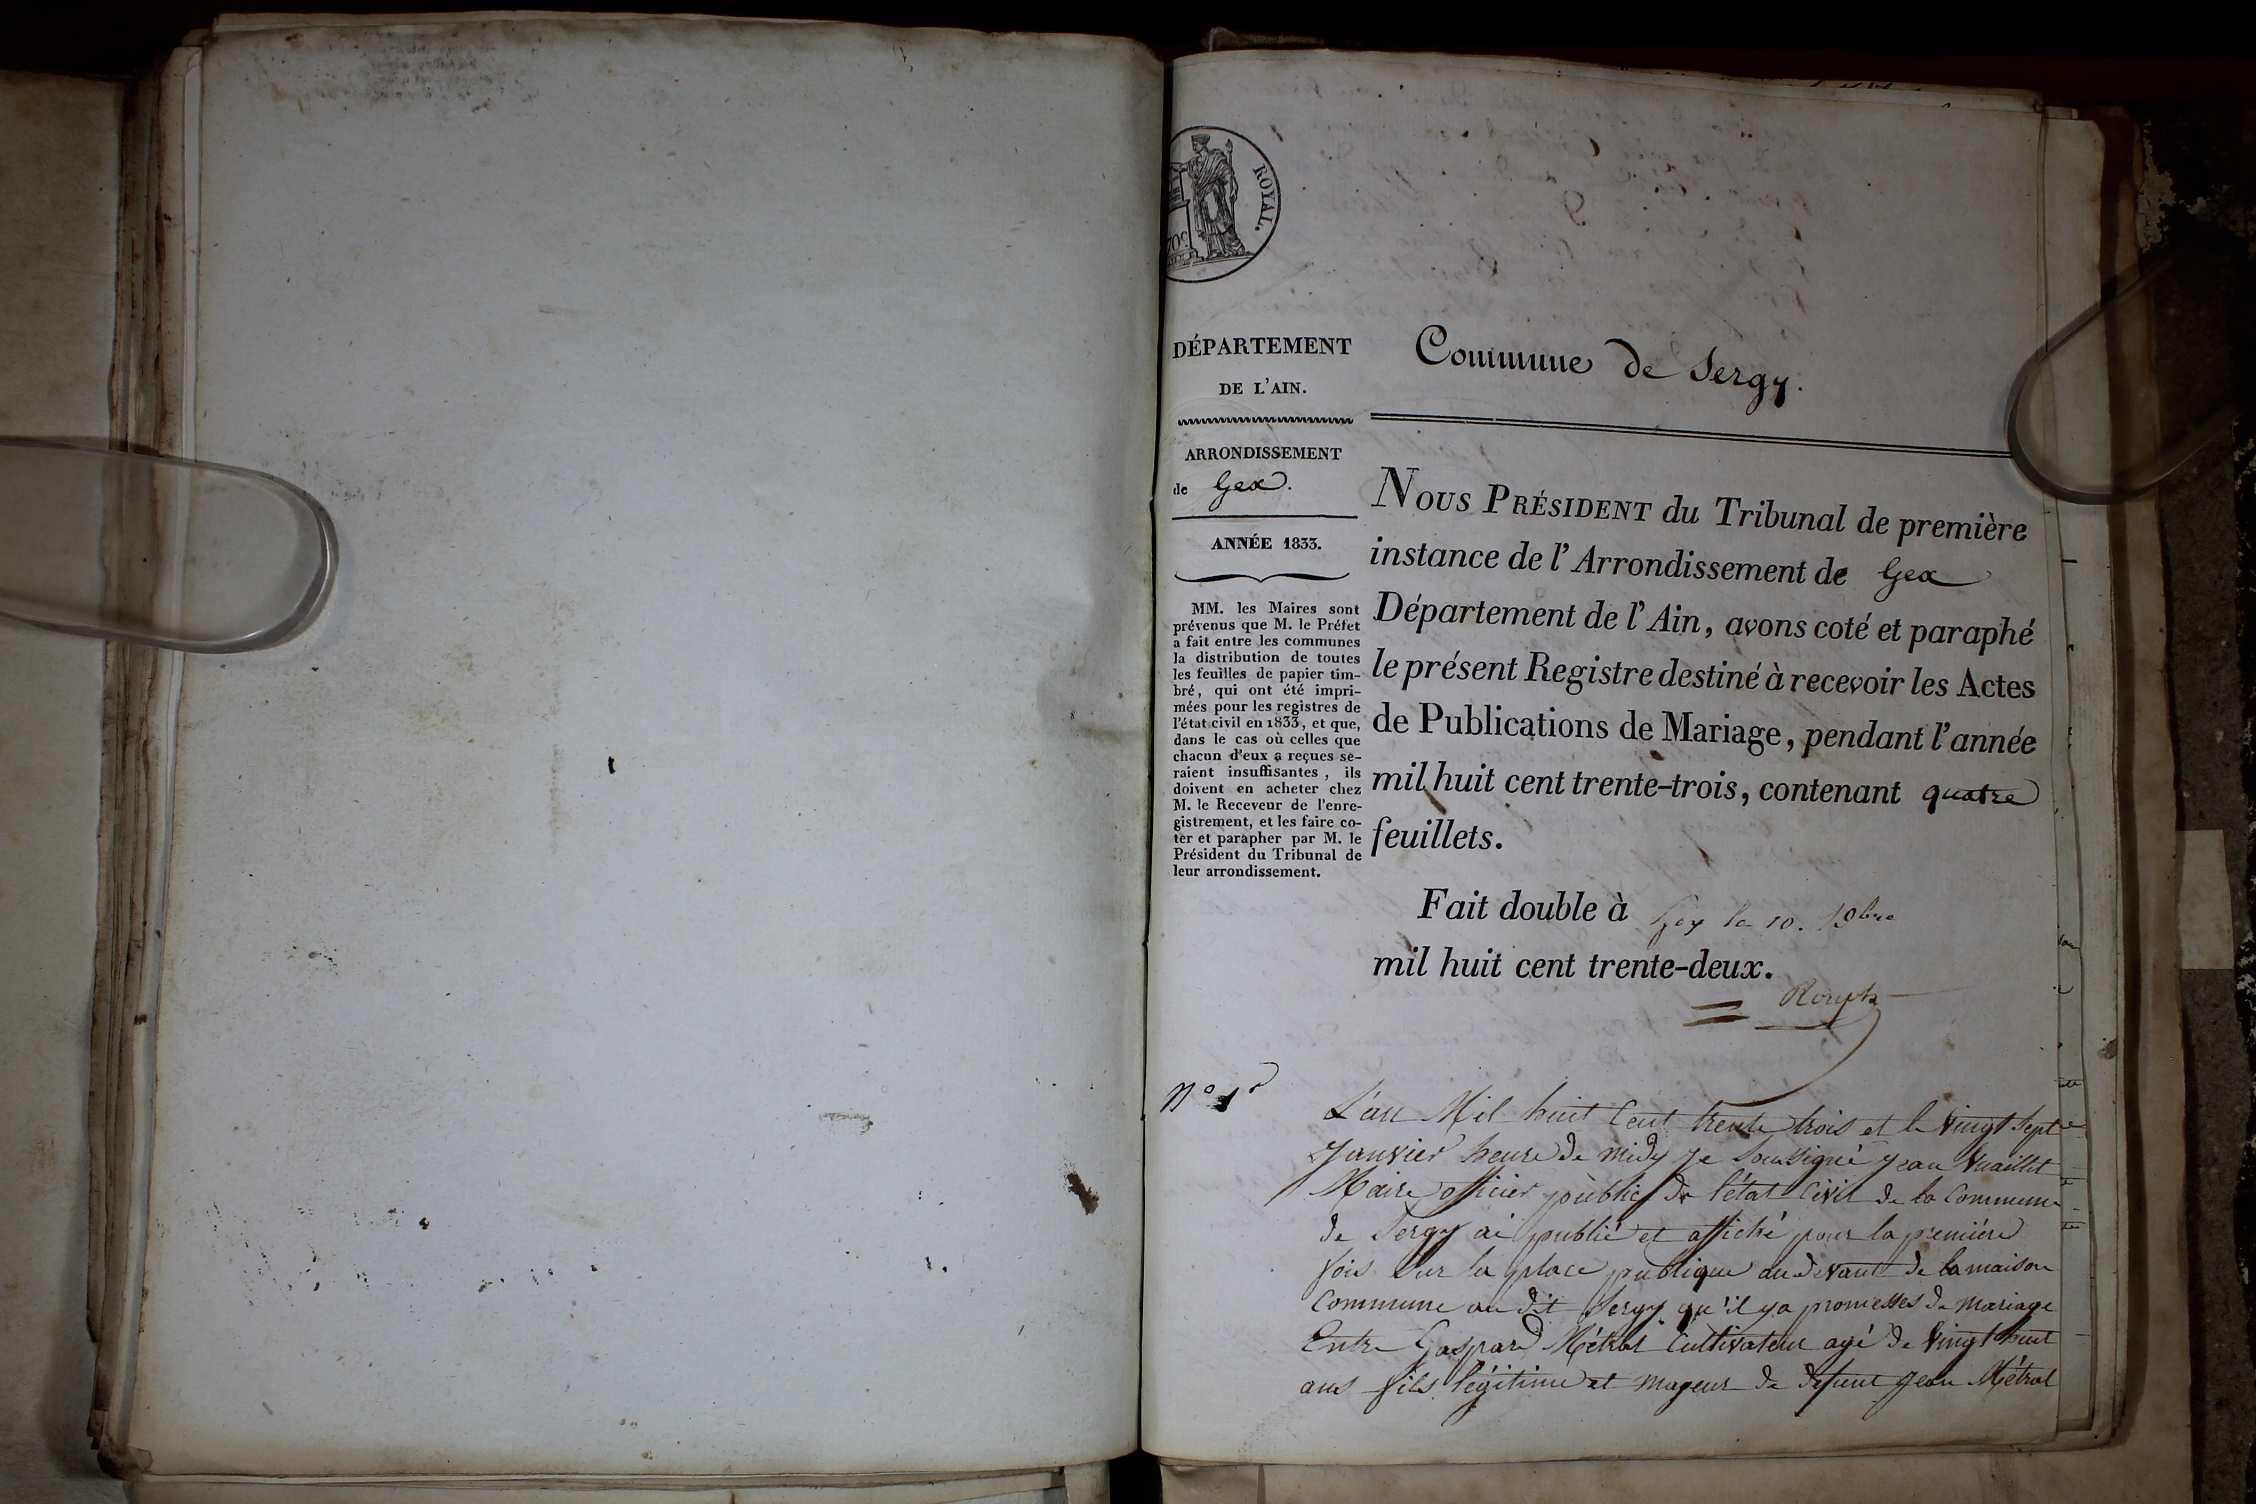 ROYAL.
70c
DÉPARTEMENT
DE L'AIN.
ARRONDISSEMENT
de Gex.
ANNÉE 1833.
MM. les Maires sont
prévenus que M. le Préfet
a fait entre les communes
la distribution de toutes
les feuilles de papier tim-
bré, qui ont été impri-
mées pour les registres de
l'état civil en 1833, et que,
dans le cas où celles que
chacun d'eux a reçues se-
raient insuffisantes, ils
doivent en acheter chez
M. le Receveur de l'enre-
gistrement, et les faire co-
ter et parapher par M. le
Président du Tribunal de
leur arrondissement.
Commune de Sergy.
NOUS PRÉSIDENT du Tribunal de première
instance de l'Arrondissement de Gex
Département de l'Ain, avons coté et paraphé
le présent Registre destiné à recevoir les Actes
de Publications de Mariage, pendant l'année
mil huit cent trente-trois, contenant quatre
feuillets.
Fait double à Gex le 10. Xbre
mil huit cent trente-deux.
N° 1r
L'an Mil huit Cent trente trois et le Vingt Sept
Janvier heure de midy Je Soussigné Jean Vuaillet
Maire officier public de l'état Civil de la Commune
de Sergy ai publié et affiché pour la première
fois Sur la place publique au devant de la maison
Commune au dit Sergy qu'il y a promesses de Mariage
Entre Gaspard Métral Cultivateur agé de Vingt huit
ans fils légitime et mageur de defunt Jean Métral